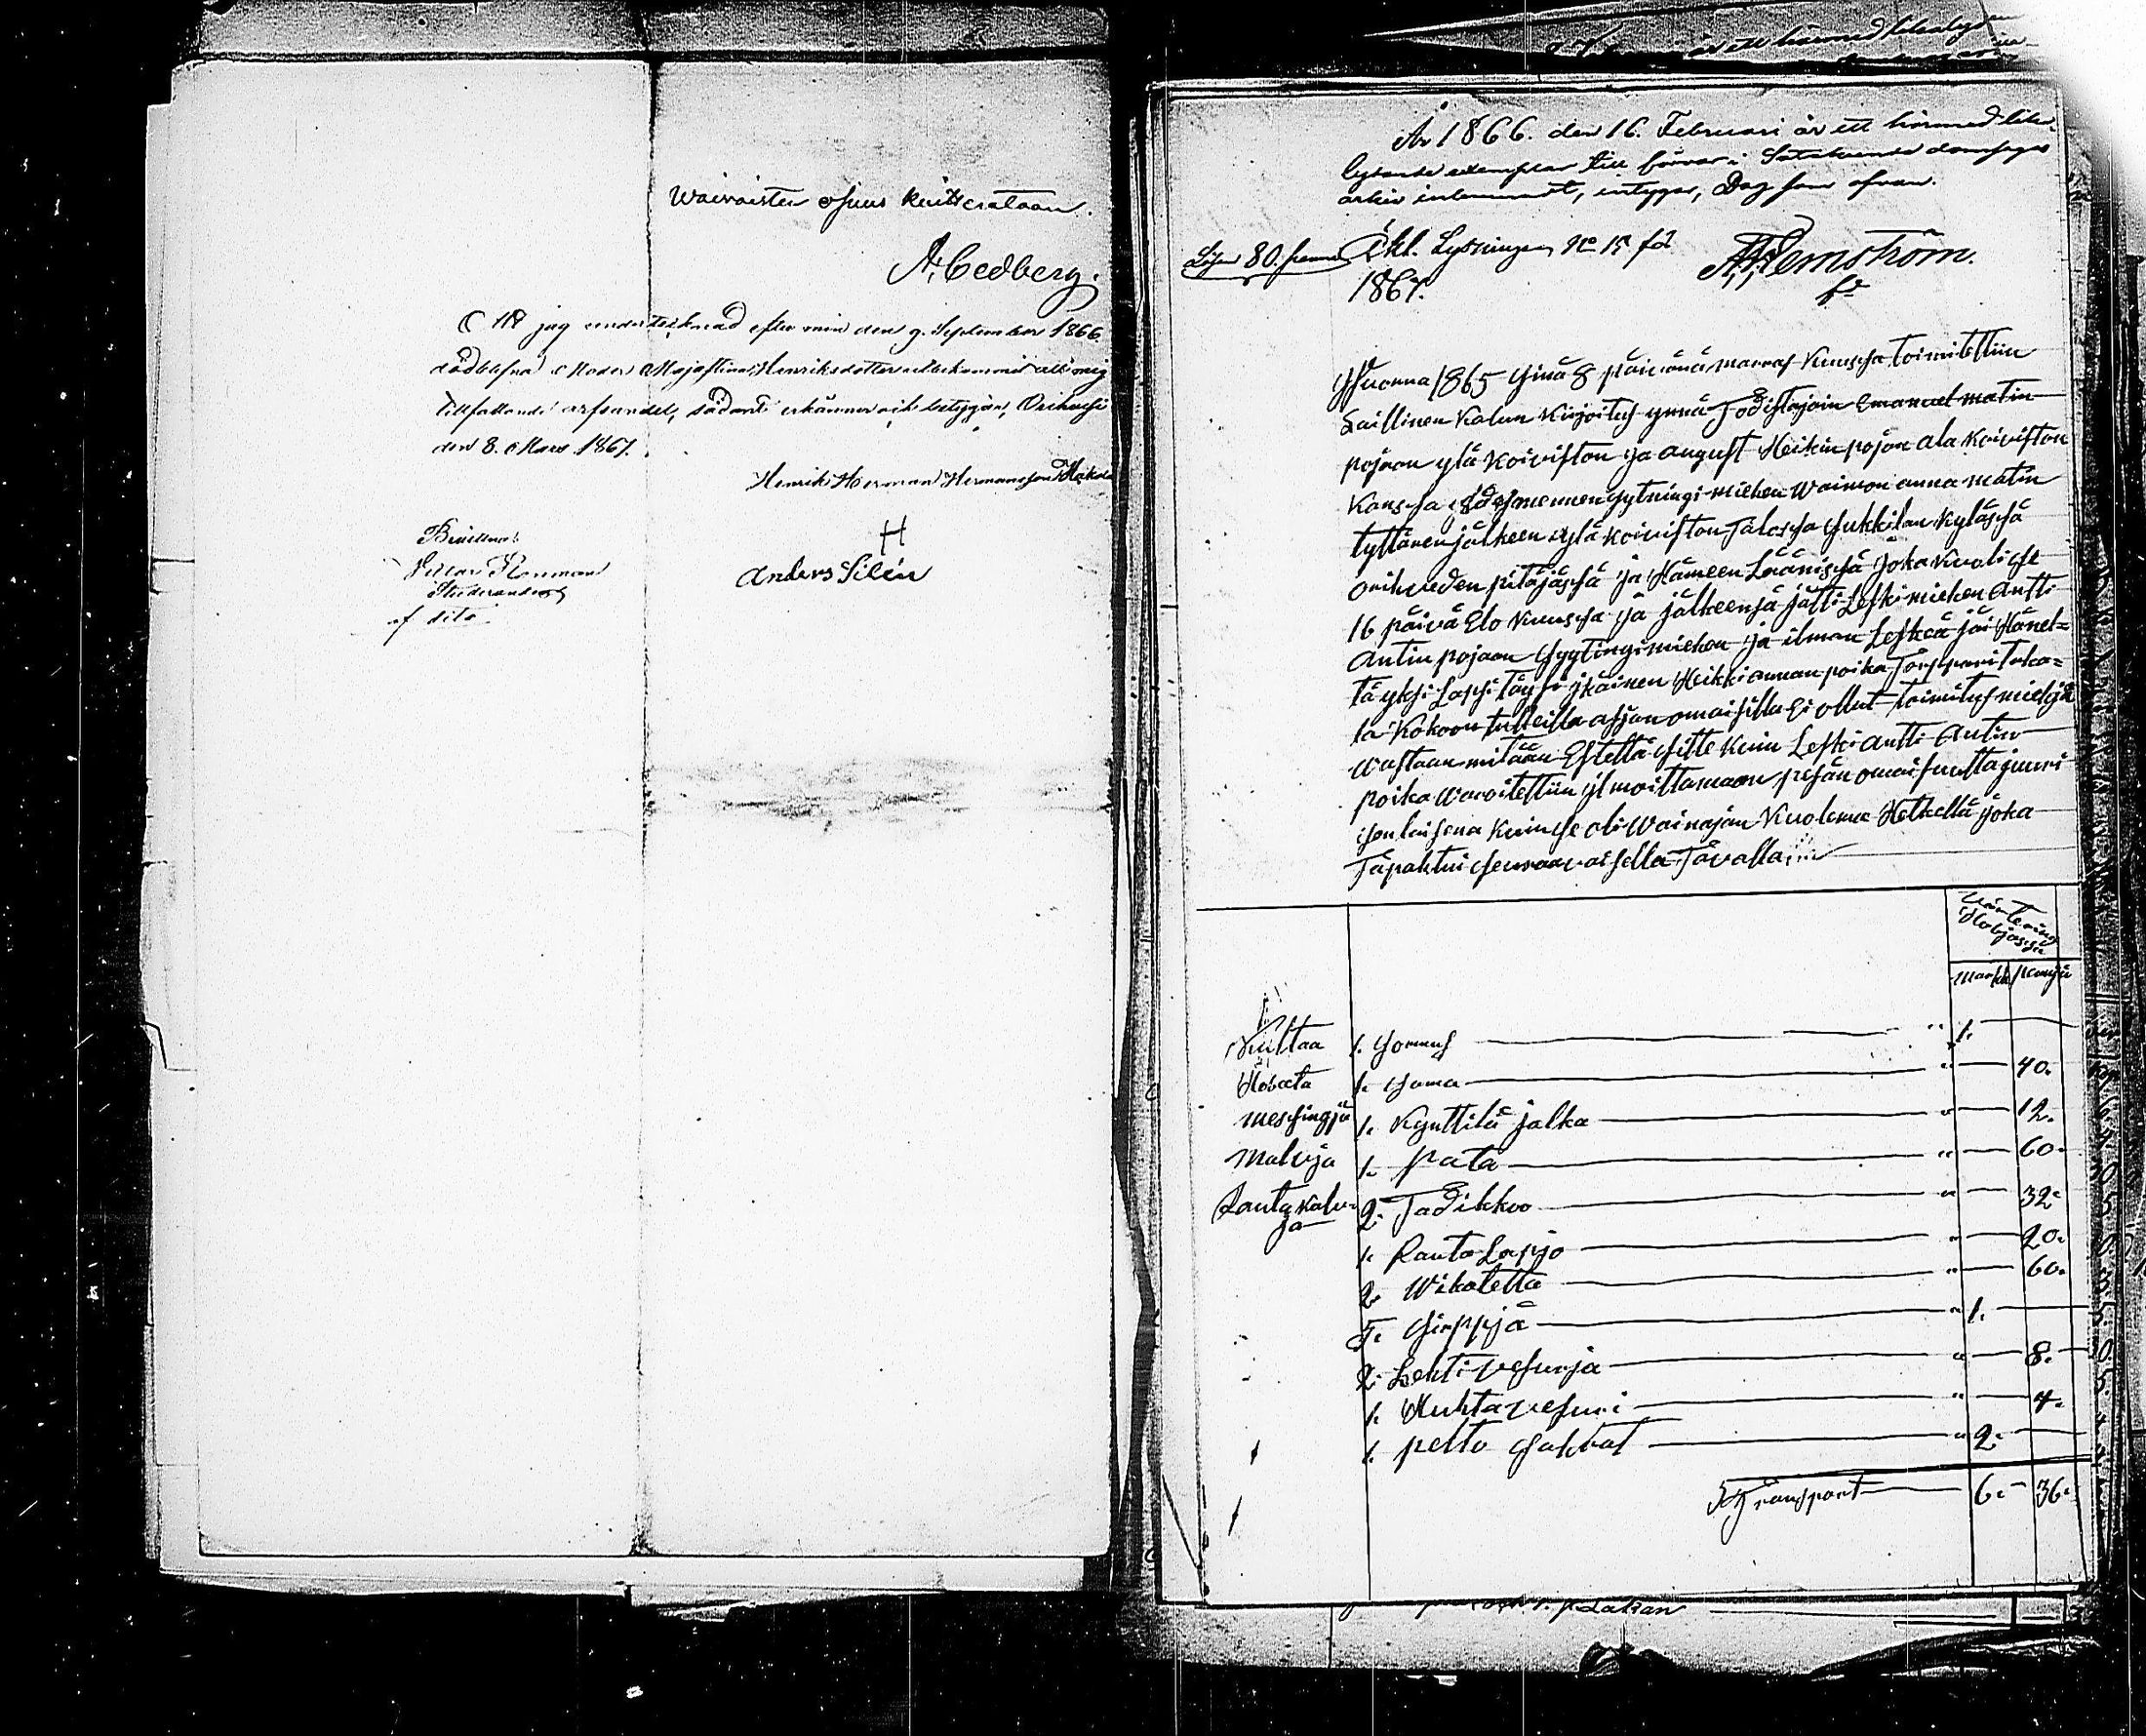 Waivaisten osuus kuitterataan.
A. Cedberg.
Att jag undertecknad efter min den 9. September 1866
aflidna Moder Maja Stina Henriksdotter utbekommit allt mig
tillfallande arf, sådant erkännes och betygar, Orihvesi
den 8. Mars 1867.
Henrik Herman Hermansson Hakala
Bevittna:
H
Anders Silén
af dito
År 1866. den 16. Februari är ett härmed lika
lydande exemplar till förvar i Satakunda domsagas
arkiv inlemnadt, intygar, Dag som ofvan.
Lösen 80. penni
Exkl. Lysningen No 15 för
1867.
Wuonna 1865 sinä 8 päivänä marras kuussa toimitettiin
Laillinen kalun kirjoitus ynnä Todistajain Emanuel matin
pojaan ylä Koiviston ja august Heikin pojan ala Koiviston
kanssa edesmennen syytingi miehen waimon anna matin
tyttären jälkeen ylä koiviston Talossa sukkilan kylässä
orihveden pitäjässä ja Hämeen Läänissä joka kuoli se
16 päivä Elo kuussa ja jälkeensä jätti Leski miehen Antti
Antin pojaan syytingimiehen ja ilman Leskeä jäi Hänel=
tä yksi Lapsi täysi ikäinen Heikki annan poika
lä kokoon tulleilla asjan omaisilla Ei ollut toimitus miehiä
wastaan mitään Estettä sitte kuin Leski Antti Antin
poika waroitettiin ilmoittamaan pesän omaisuutta juuri
sen laisena kuin se oli Wainajan kuoleman Hetkellä joka
Tapahtui seuraavaisella Tavalla
Wärtering
markka pennjä
Kultaa 1. sormus " 1.
Hobeeta 1. soma " 40.
messingjä 1. kynttilä jalka " 12.
Malvja 1. pata " 60.
Rauta kalu=
ja 2. Tadikkoo " 32.
1. Rauta Lapjo " 20.
2. Wikatetta " 60.
5. sirppjä " 1.
2. Lehti vesurja " 8.
1. Huhta vesuri " 4.
1. pelto sahrat " 2.
Transport 6. 36.